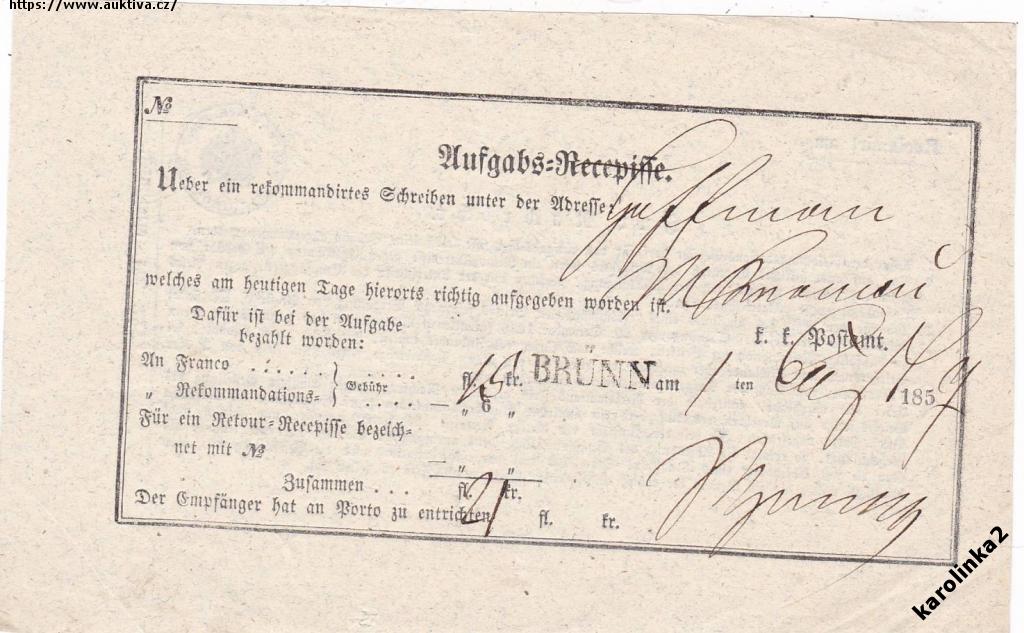 https://www.auktiva.cz/
№
Aufgabs-Recepisse.
Ueber ein rekommandirtes Schreiben unter der Adresse: Hoffmann
welches am heutigen Tage hierorts richtig aufgegeben worden ist.
Dafür ist bei der Aufgabe
bezahlt worden:
k. k. Postamt.
An Franco . . . . . . } Gebühr . . . . fl. 15 kr. BRÜNN am 1 ten 1859
„ Rekommandations- . . . . — „ 6 „
Für ein Retour-Recepisse bezeich-
net mit № — „ „
Zusammen . . . fl. 21 kr.
Der Empfänger hat an Porto zu entrichten fl. kr.
karolinka2